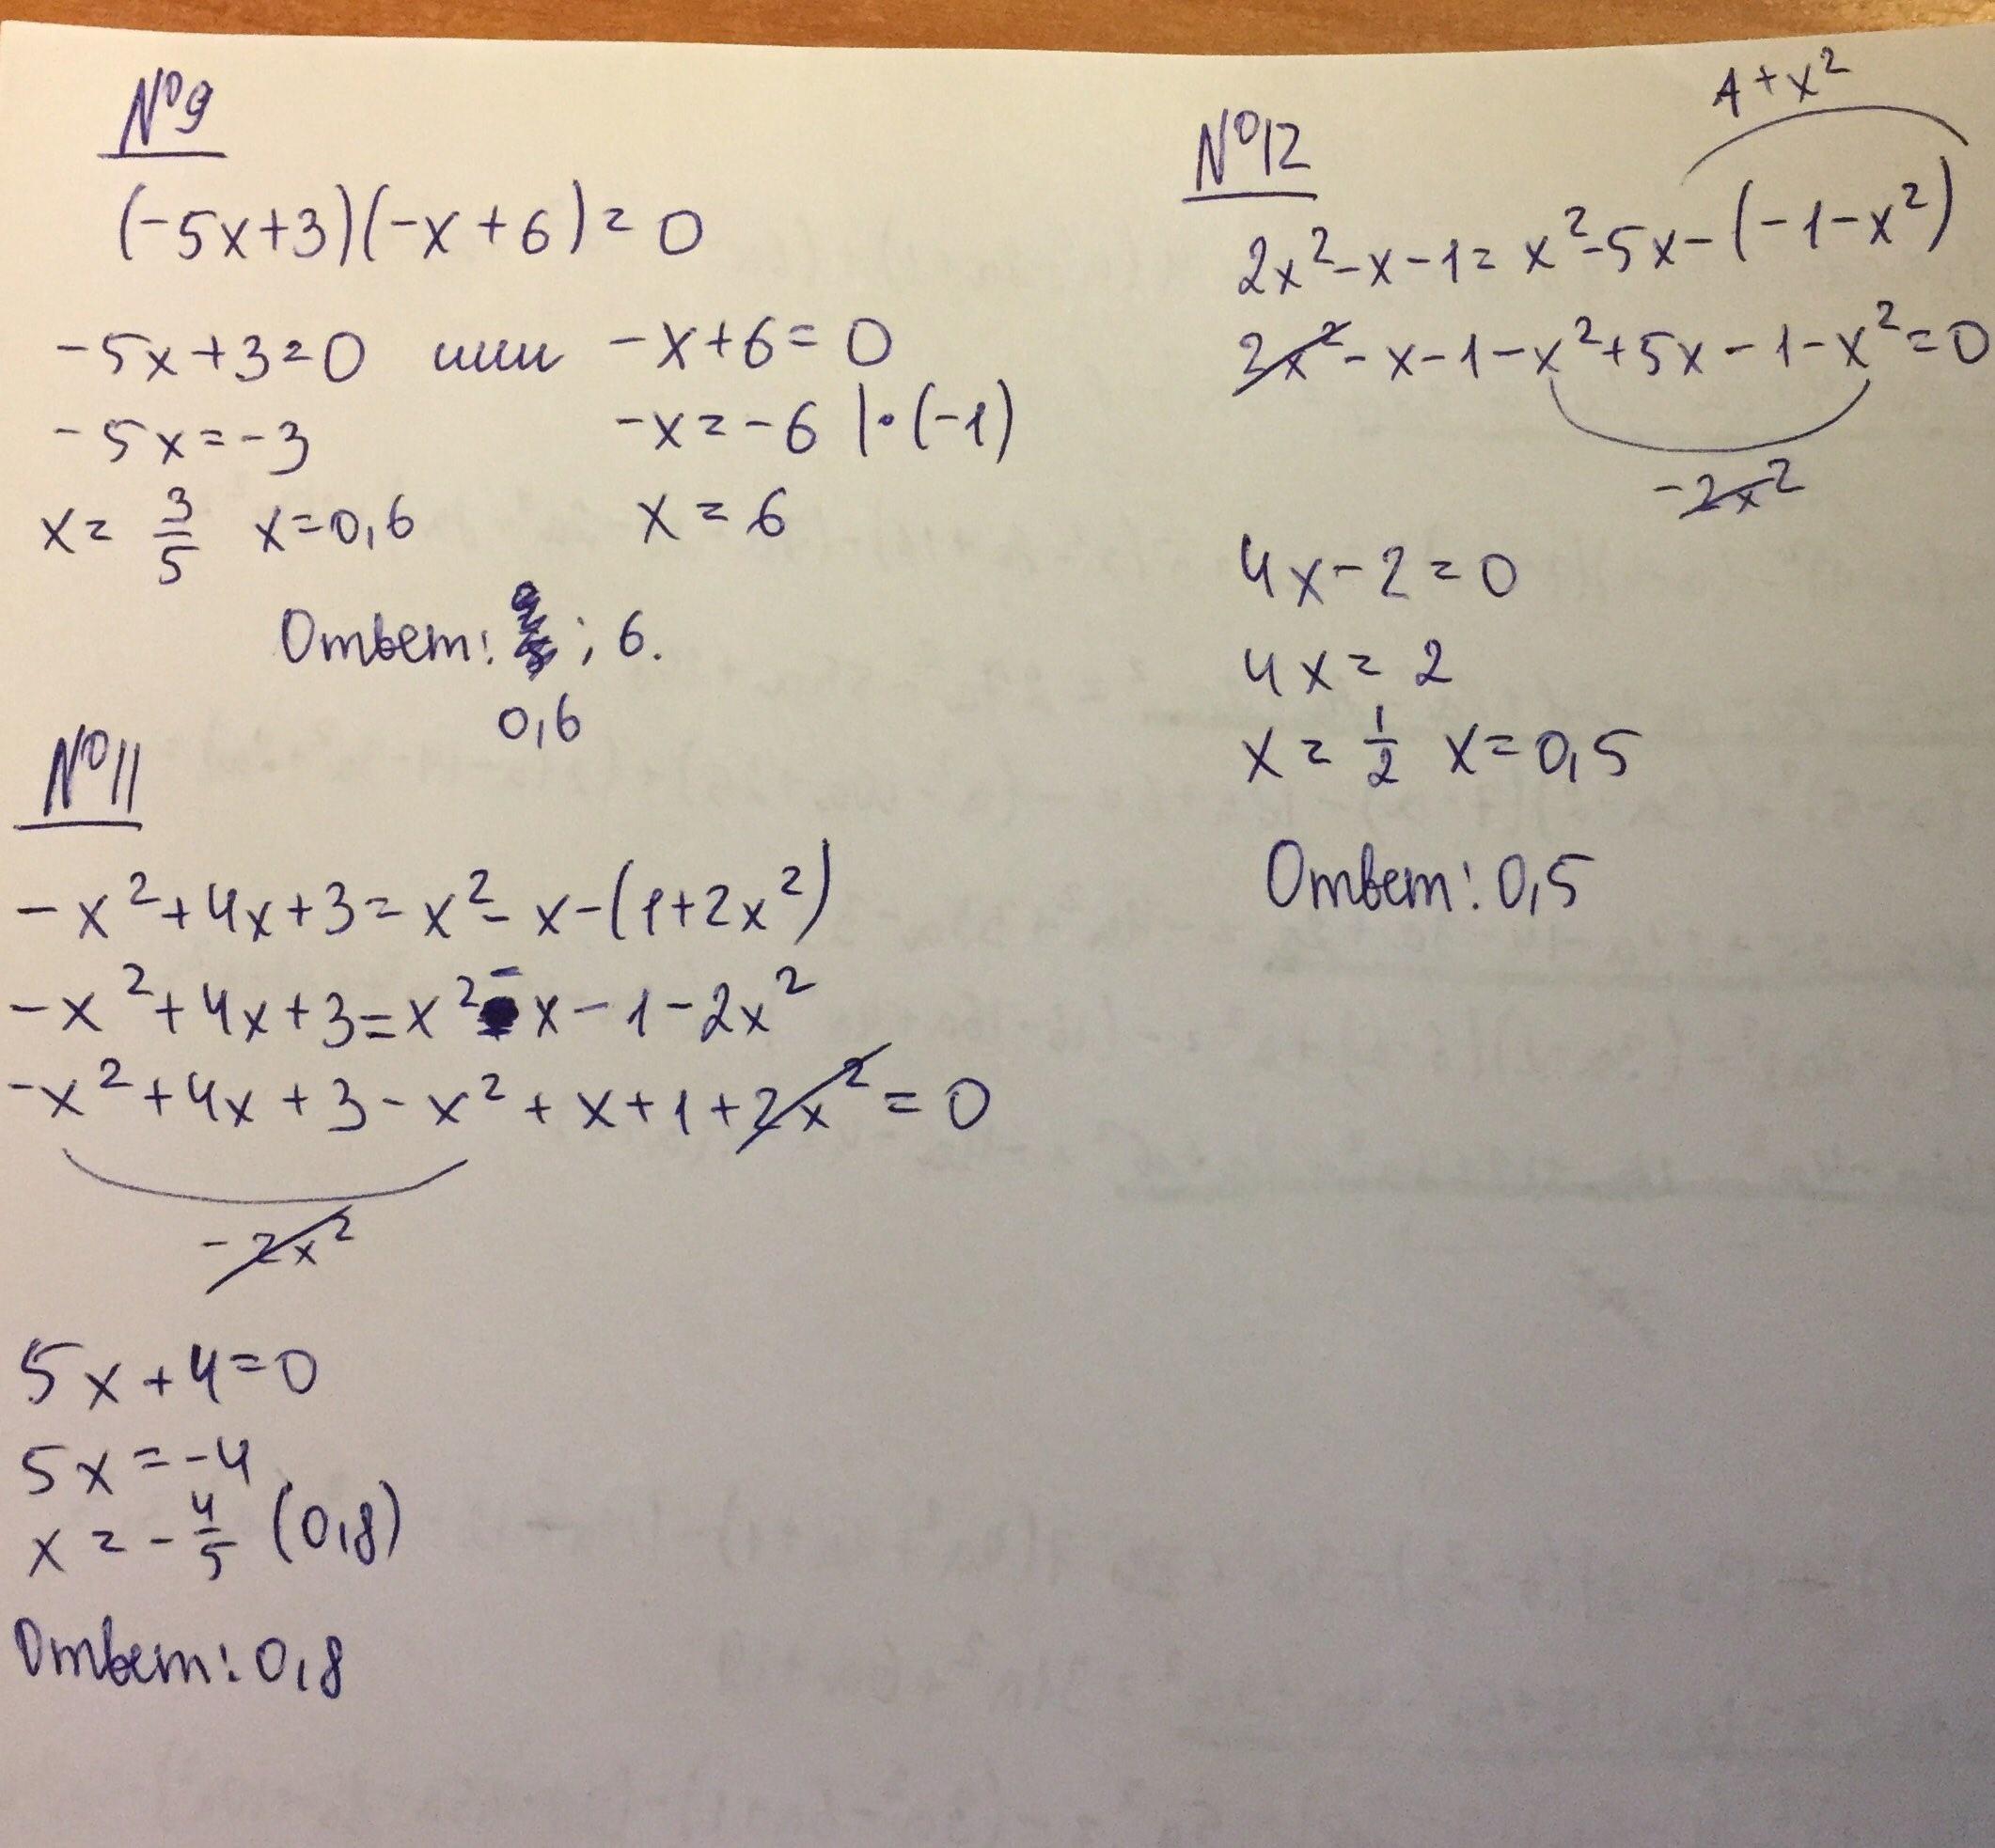 №9
(-5x+3)(-x+6)=0
-5x+3=0 или -x+6=0
-5x=-3 -x=-6 |·(-1)
x=3/5 x=0,6 x=6
Ответ: ; 6.
0,6
№11
-x²+4x+3=x²-x-(1+2x²)
-x²+4x+3=x²-x-1-2x²
-x²+4x+3-x²+x+1+2x²=0
-2x²
5x+4=0
5x=-4
x=-4/5 (0,8)
Ответ: 0,8
№12
1+x²
2x²-x-1=x²-5x-(-1-x²)
2x²-x-1-x²+5x-1-x²=0
-2x²
4x-2=0
4x=2
x=1/2 x=0,5
Ответ: 0,5